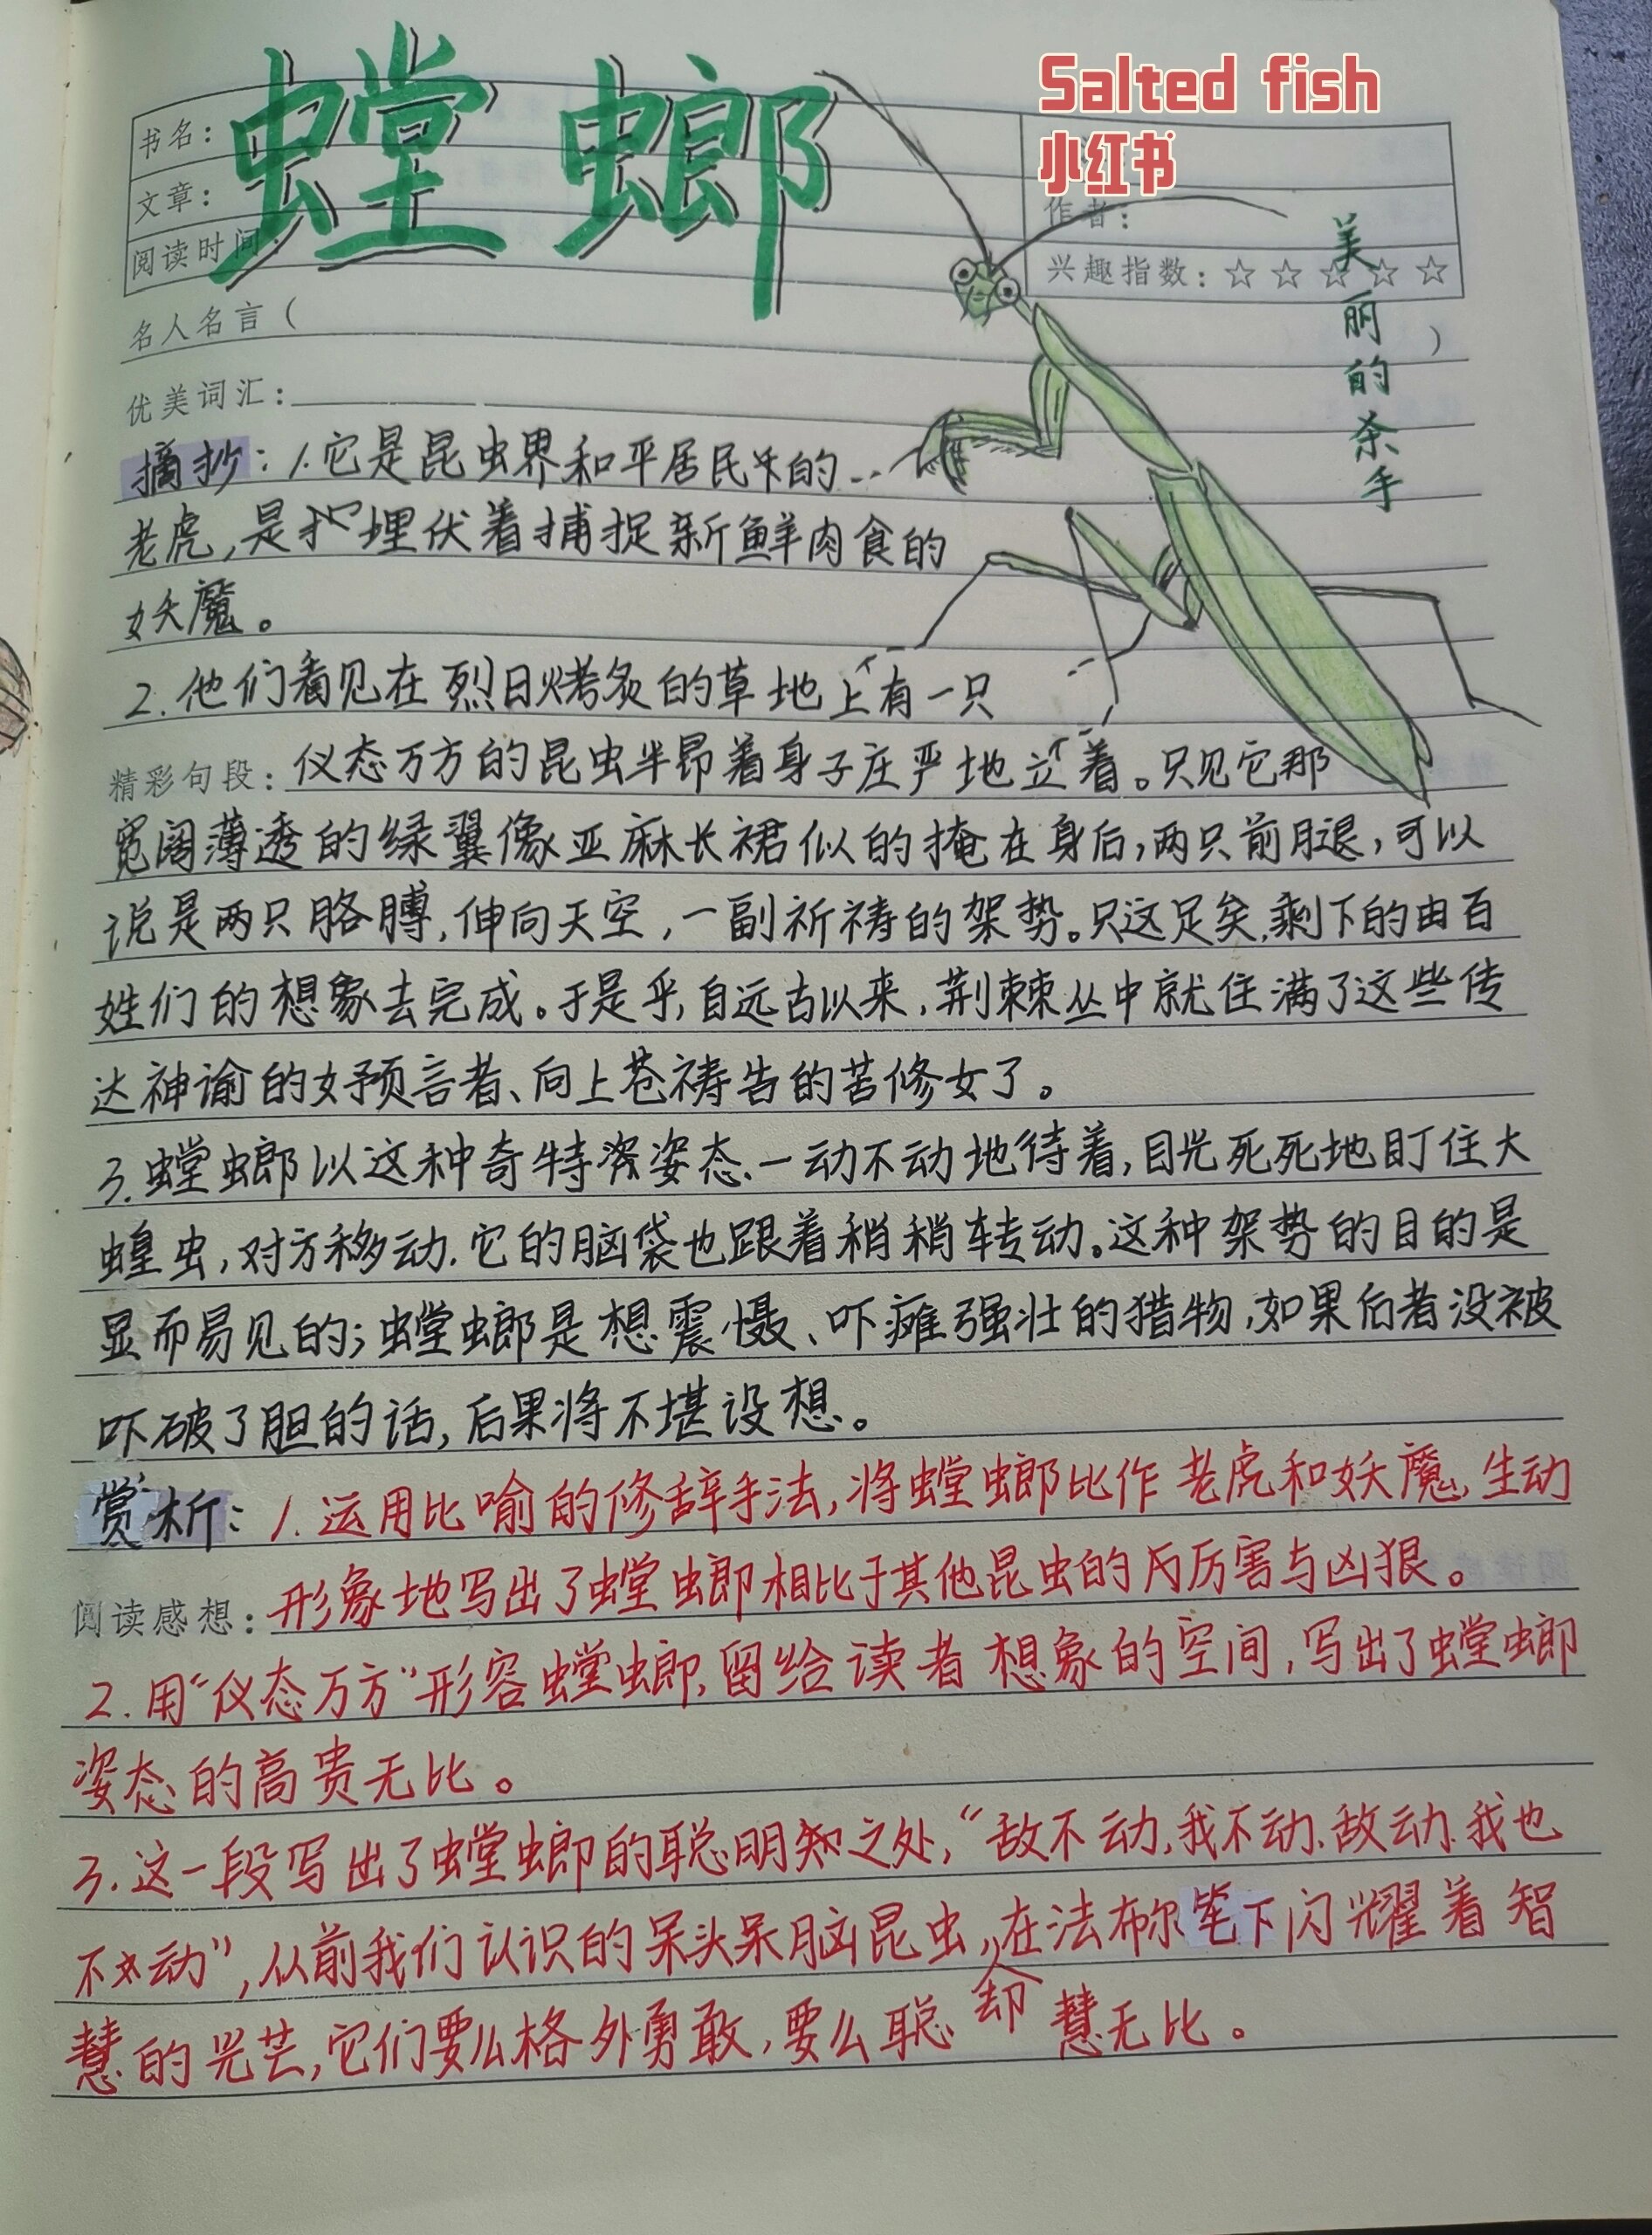 Salted fish
小红书
螳螂
书名：
文章：
作者：
阅读时间：
兴趣指数：☆ ☆ ☆ ☆ ☆
美丽的杀手
名人名言（ ）
优美词汇：
摘抄：1.它是昆虫界和平居民的
老虎，是埋伏着捕捉新鲜肉食的
妖魔。
2.他们看见在烈日烤炙的草地上有一只
精彩句段：仪态万方的昆虫半昂着身子庄严地立着。只见它那
宽阔薄透的绿翼像亚麻长裙似的掩在身后，两只前腿，可以
说是两只胳膊，伸向天空，一副祈祷的架势。只这足矣，剩下的由百
姓们的想象去完成。于是乎，自远古以来，荆棘丛中就住满了这些传
达神谕的女预言者、向上苍祷告的苦修女了。
3.螳螂以这种奇特姿态、一动不动地待着，目光死死地盯住大
蝗虫，对方移动，它的脑袋也跟着稍稍转动。这种架势的目的是
显而易见的；螳螂是想震慑、吓瘫强壮的猎物，如果后者没被
吓破了胆的话，后果将不堪设想。
赏析：1.运用比喻的修辞手法，将螳螂比作老虎和妖魔，生动
阅读感想：形象地写出了螳螂相比于其他昆虫的厉害与凶狠。
2.用“仪态万方”形容螳螂，留给读者想象的空间，写出了螳螂
姿态的高贵无比。
3.这一段写出了螳螂的聪明知之处，“敌不动，我不动，敌动，我也
不动”，从前我们认识的呆头呆脑昆虫，在法布尔笔下闪耀着智
却
慧的光芒，它们要么格外勇敢，要么聪慧无比。